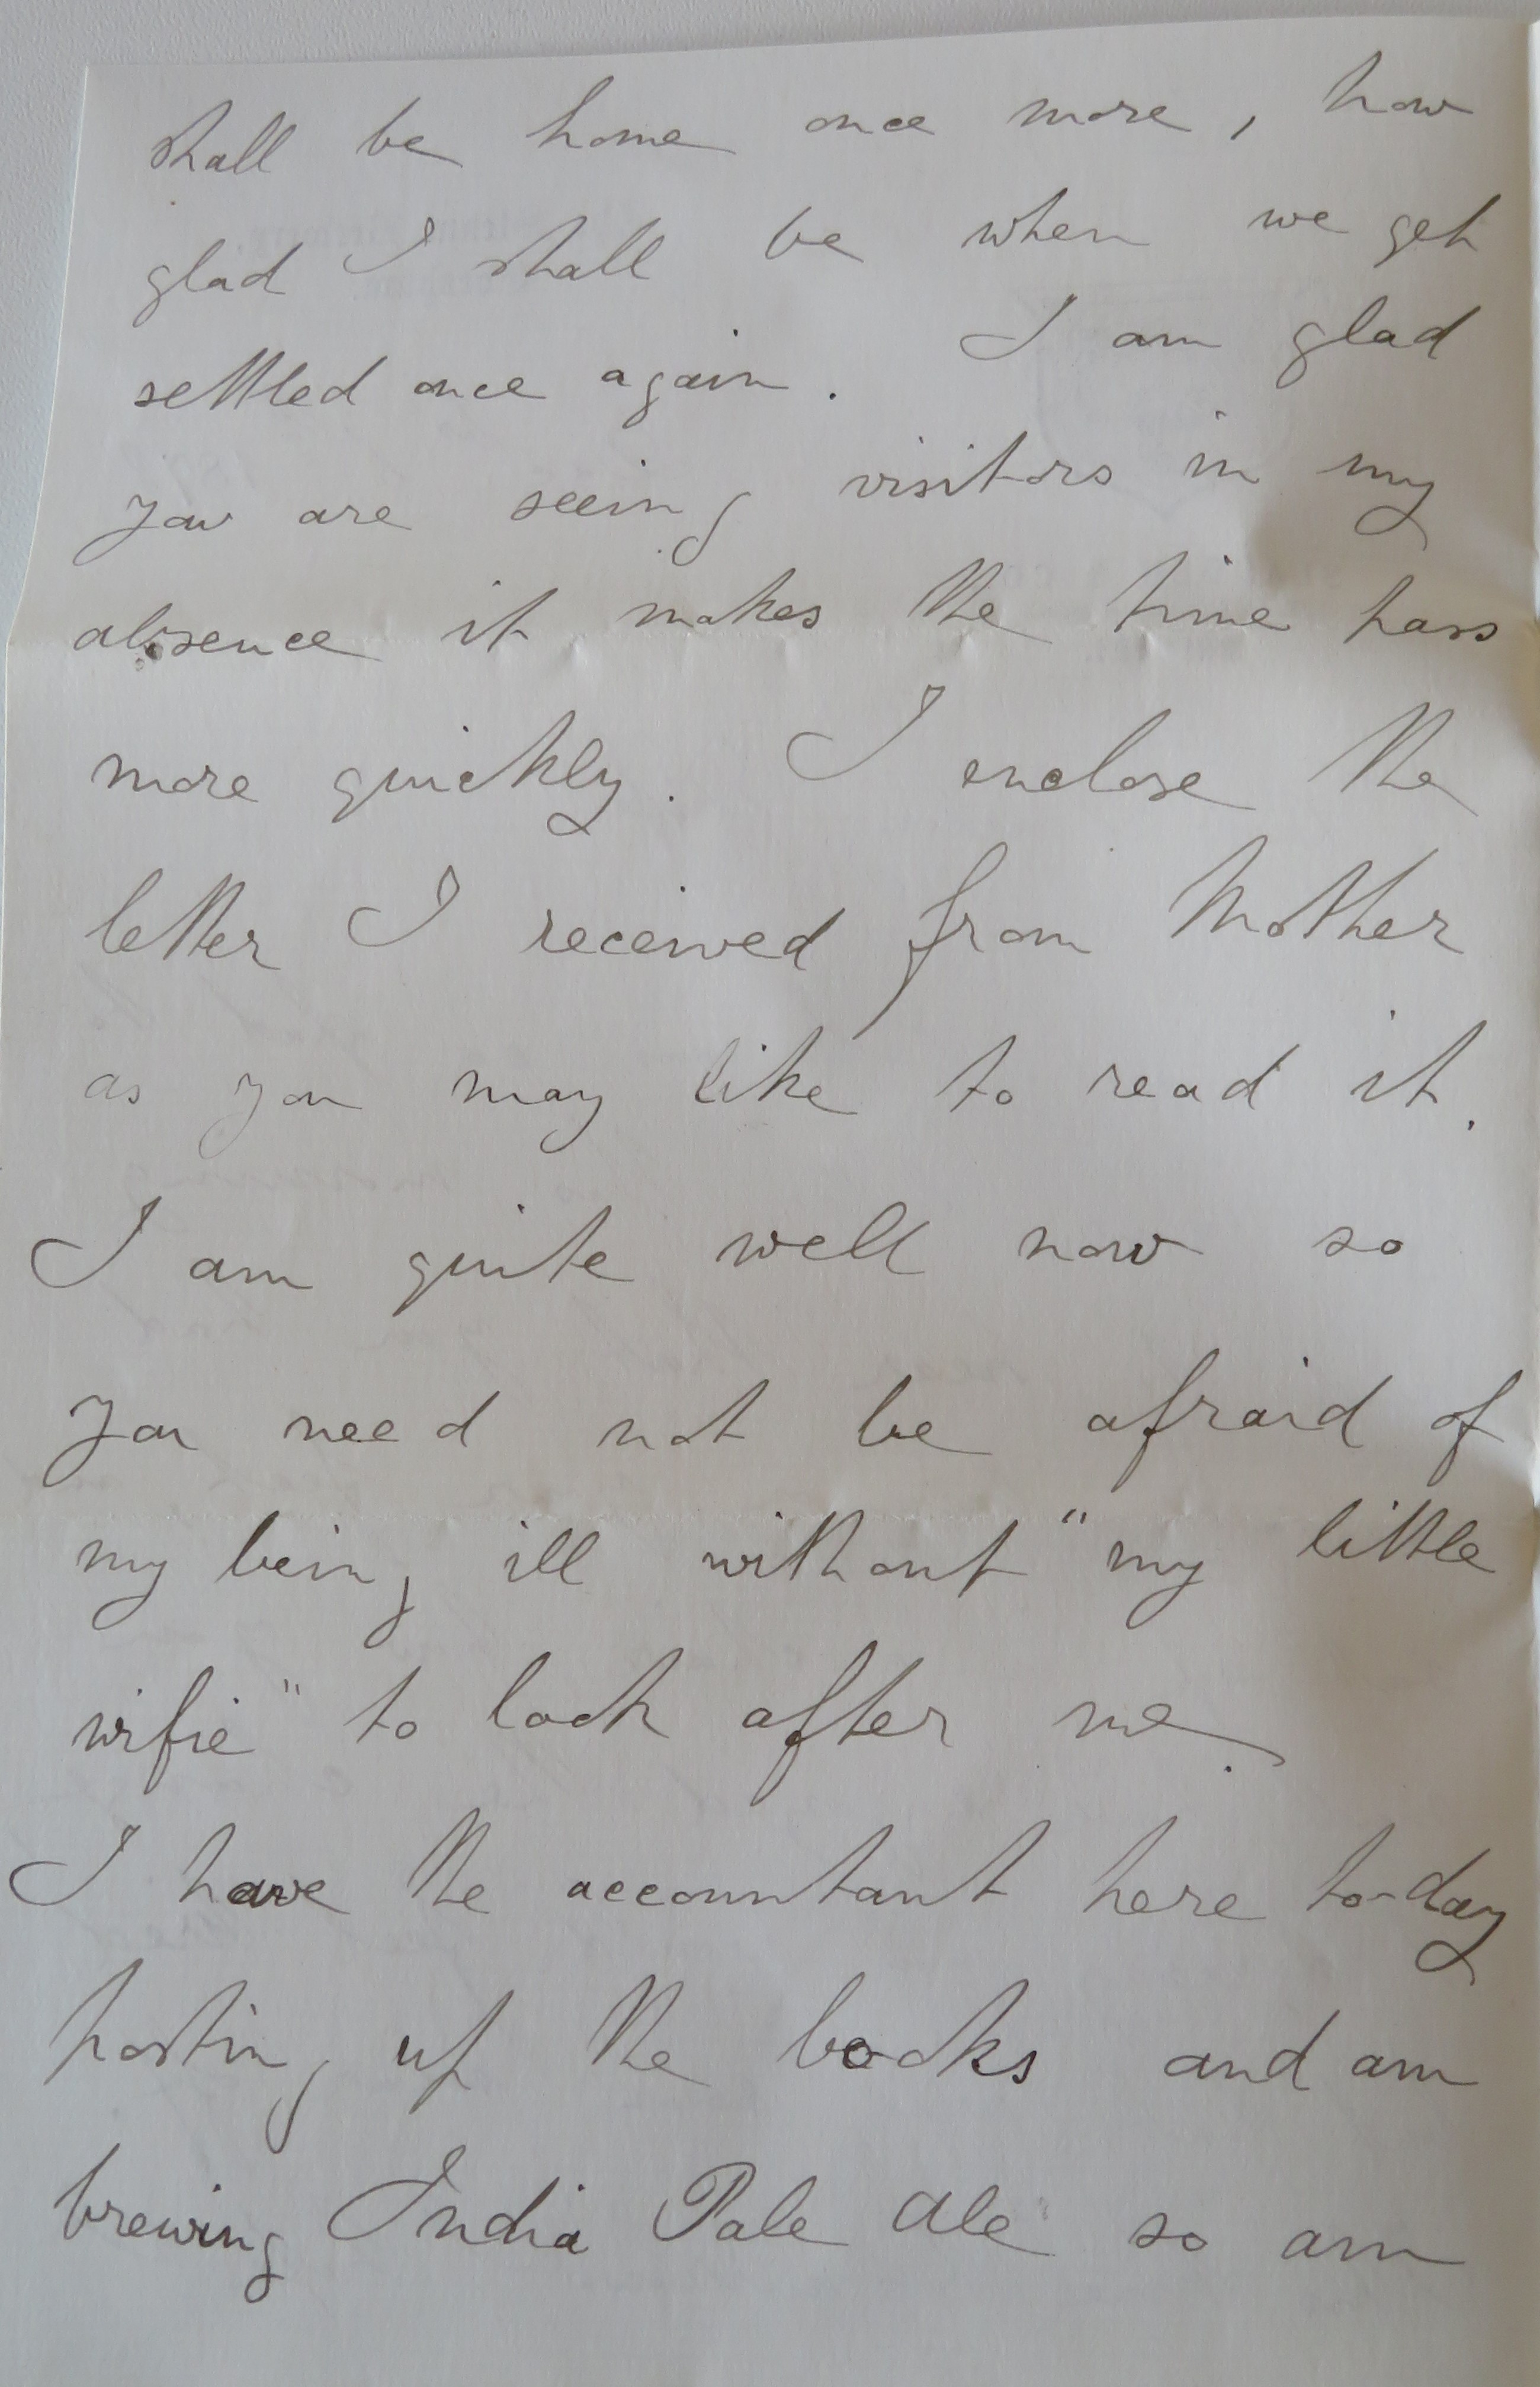 shall be home once more, how
glad I shall be when we get
settled once again. I am glad
you are seeing visitors in my
absence it makes the time pass
more quickly. I enclose the
letter I received from Mother
as you may like to read it.
I am quite well now so
you need not be afraid of
my being ill without "my little
wifie" to look after me.
I have the accountant here to-day
posting up the books and am
brewing India Pale Ale so am